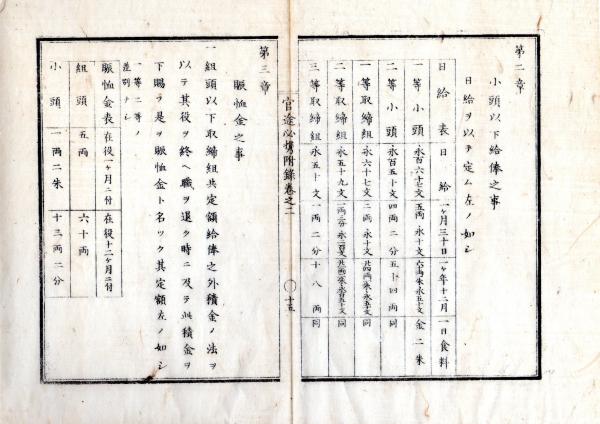 第二章
小頭以下給俸之事
日給ヲ以テ定ム左ノ如シ
日給表 日給 一ヶ月三十日 一ヶ年十二月 一日食料
一等小頭 永百六十七文 五両永十文 六両朱永五十文 金二朱
二等小頭 永百五十文 四両二分 五十四両 同
一等取締組 永六十七文 二両永十文 同
二等取締組 永五十九文 同
三等取締組 永五十文 一両二分 十八両 同
官途必携附録巻之二 〇十五
第三章
賑恤金之事
一組頭以下取締組共定額給俸之外積金ノ法ヲ
以テ其役ヲ終ヘ職ヲ退ク時ニ及テ此積金ヲ
下賜ラ是ヲ賑恤金ト名ツク其定額左ノ如シ
一等二等ノ差別ナシ
賑恤金表 在役一ヶ月ニ付 在役十二ヶ月ニ付
組頭 五両 六十両
小頭 一両二朱 十三両二分